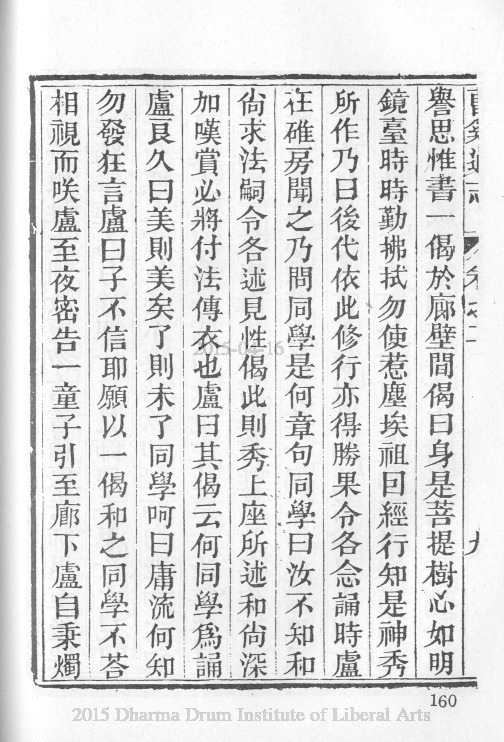 譽思惟書一偈於廊壁間偈曰身是菩提樹心如明
鏡臺時時勤拂拭勿使惹塵埃祖因經行知是神秀
所作乃曰後代依此修行亦得勝果令各念誦時盧
在碓房聞之乃問同學是何章句同學曰汝不知和
尙求法嗣令各述見性偈此則秀上座所述和尙深
加嘆賞必將付法傳衣也盧曰其偈云何同學爲誦
盧良久曰美則美矣了則未了同學呵曰庸流何知
勿發狂言盧曰子不信耶願以一偈和之同學不荅
相視而咲盧至夜密告一童子引至廊下盧自秉燭
160
2015-04-16
2015 Dharma Drum Institute of Liberal Arts